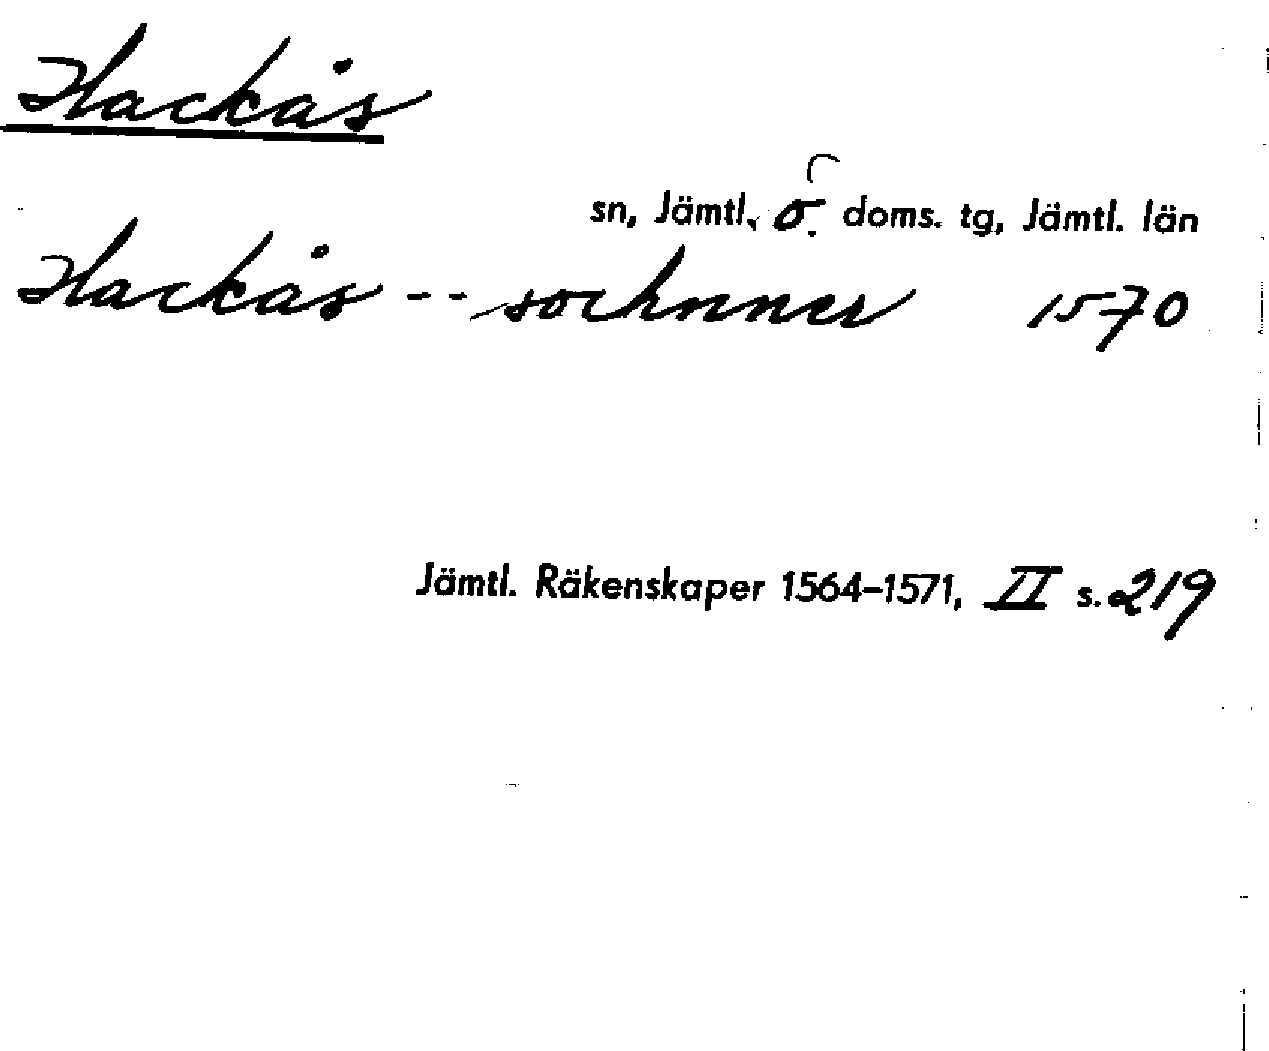 Hackås
sn, Jämtl. ö. doms. tg, Jämtl. län
Hackås -- sochnner 1570
Jämtl. Räkenskaper 1564-1571, II s. 219